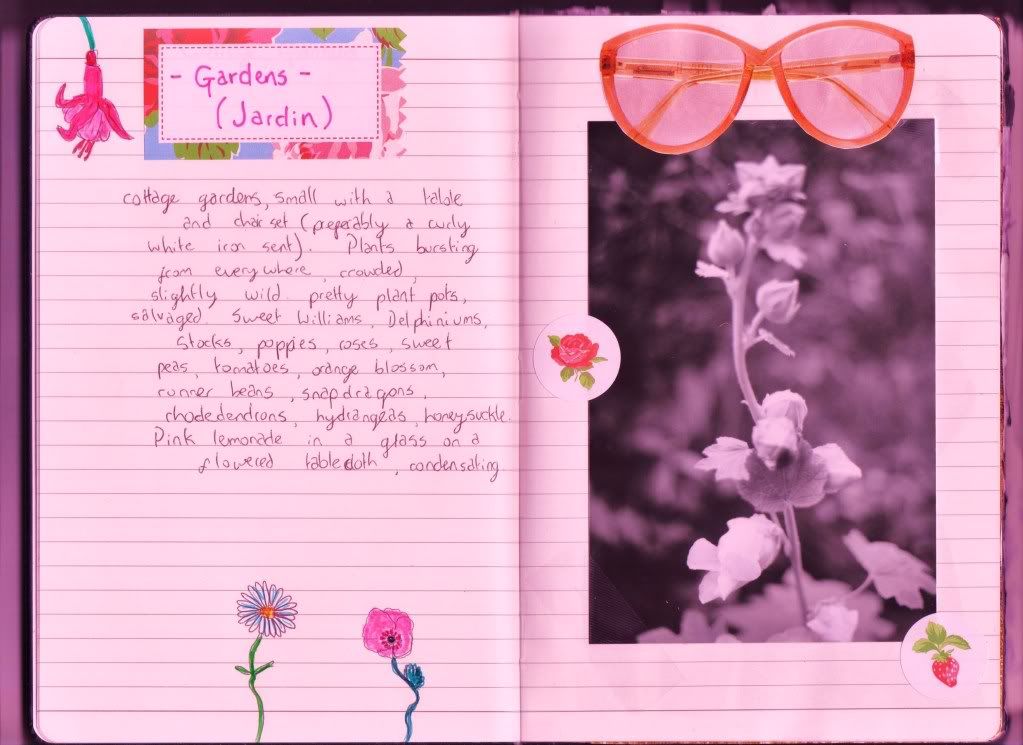 - Gardens -
(Jardin)
cottage gardens, small with a table
and chair set (preferably a curly
white iron sent). Plants bursting
from everywhere, crowded,
slightly wild. pretty plant pots,
salvaged. Sweet Williams, Delphiniums,
Stocks, poppies, roses, sweet
peas, tomatoes, orange blossom,
runner beans, snapdragons,
rhodedendrons, hydrangeas, honeysuckle.
Pink lemonade in a glass on a
flowered tablecloth, condensating.